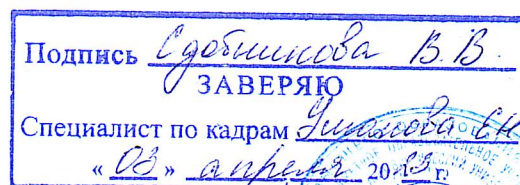 Подпись Сдобникова В. В.
ЗАВЕРЯЮ
Специалист по кадрам Е.Н.
« 03 » апреля 20 г.